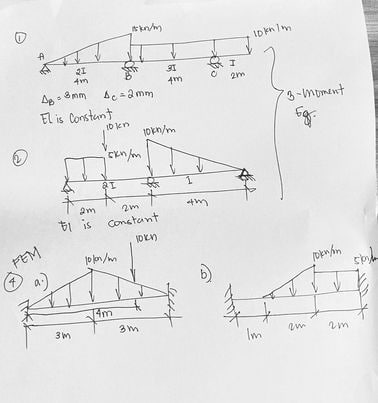 ①
15kn/m
10kn/m
A
2I
B
3I
C
I
4m
4m
2m
ΔB = 3mm ΔC = 2mm
EI is constant
3-moment
Eq.
10kn
②
5kn/m
10kn/m
2I
I
2m
2m
4m
EI is constant
FEM
10kn
④ a.)
10kn/m
4m
3m
3m
b)
10kn/m
5kn/m
1m
2m
2m